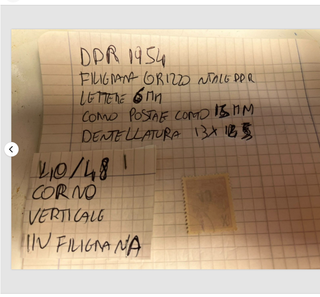 DPR 1954
FILIGRANA ORIZZONTALE DDR
LETTERE 6 MM
CORNO POSTAE CORNO MM
DENTELLATURA 13X
40/48
CORNO
VERTICALE
IN FILIGRANA